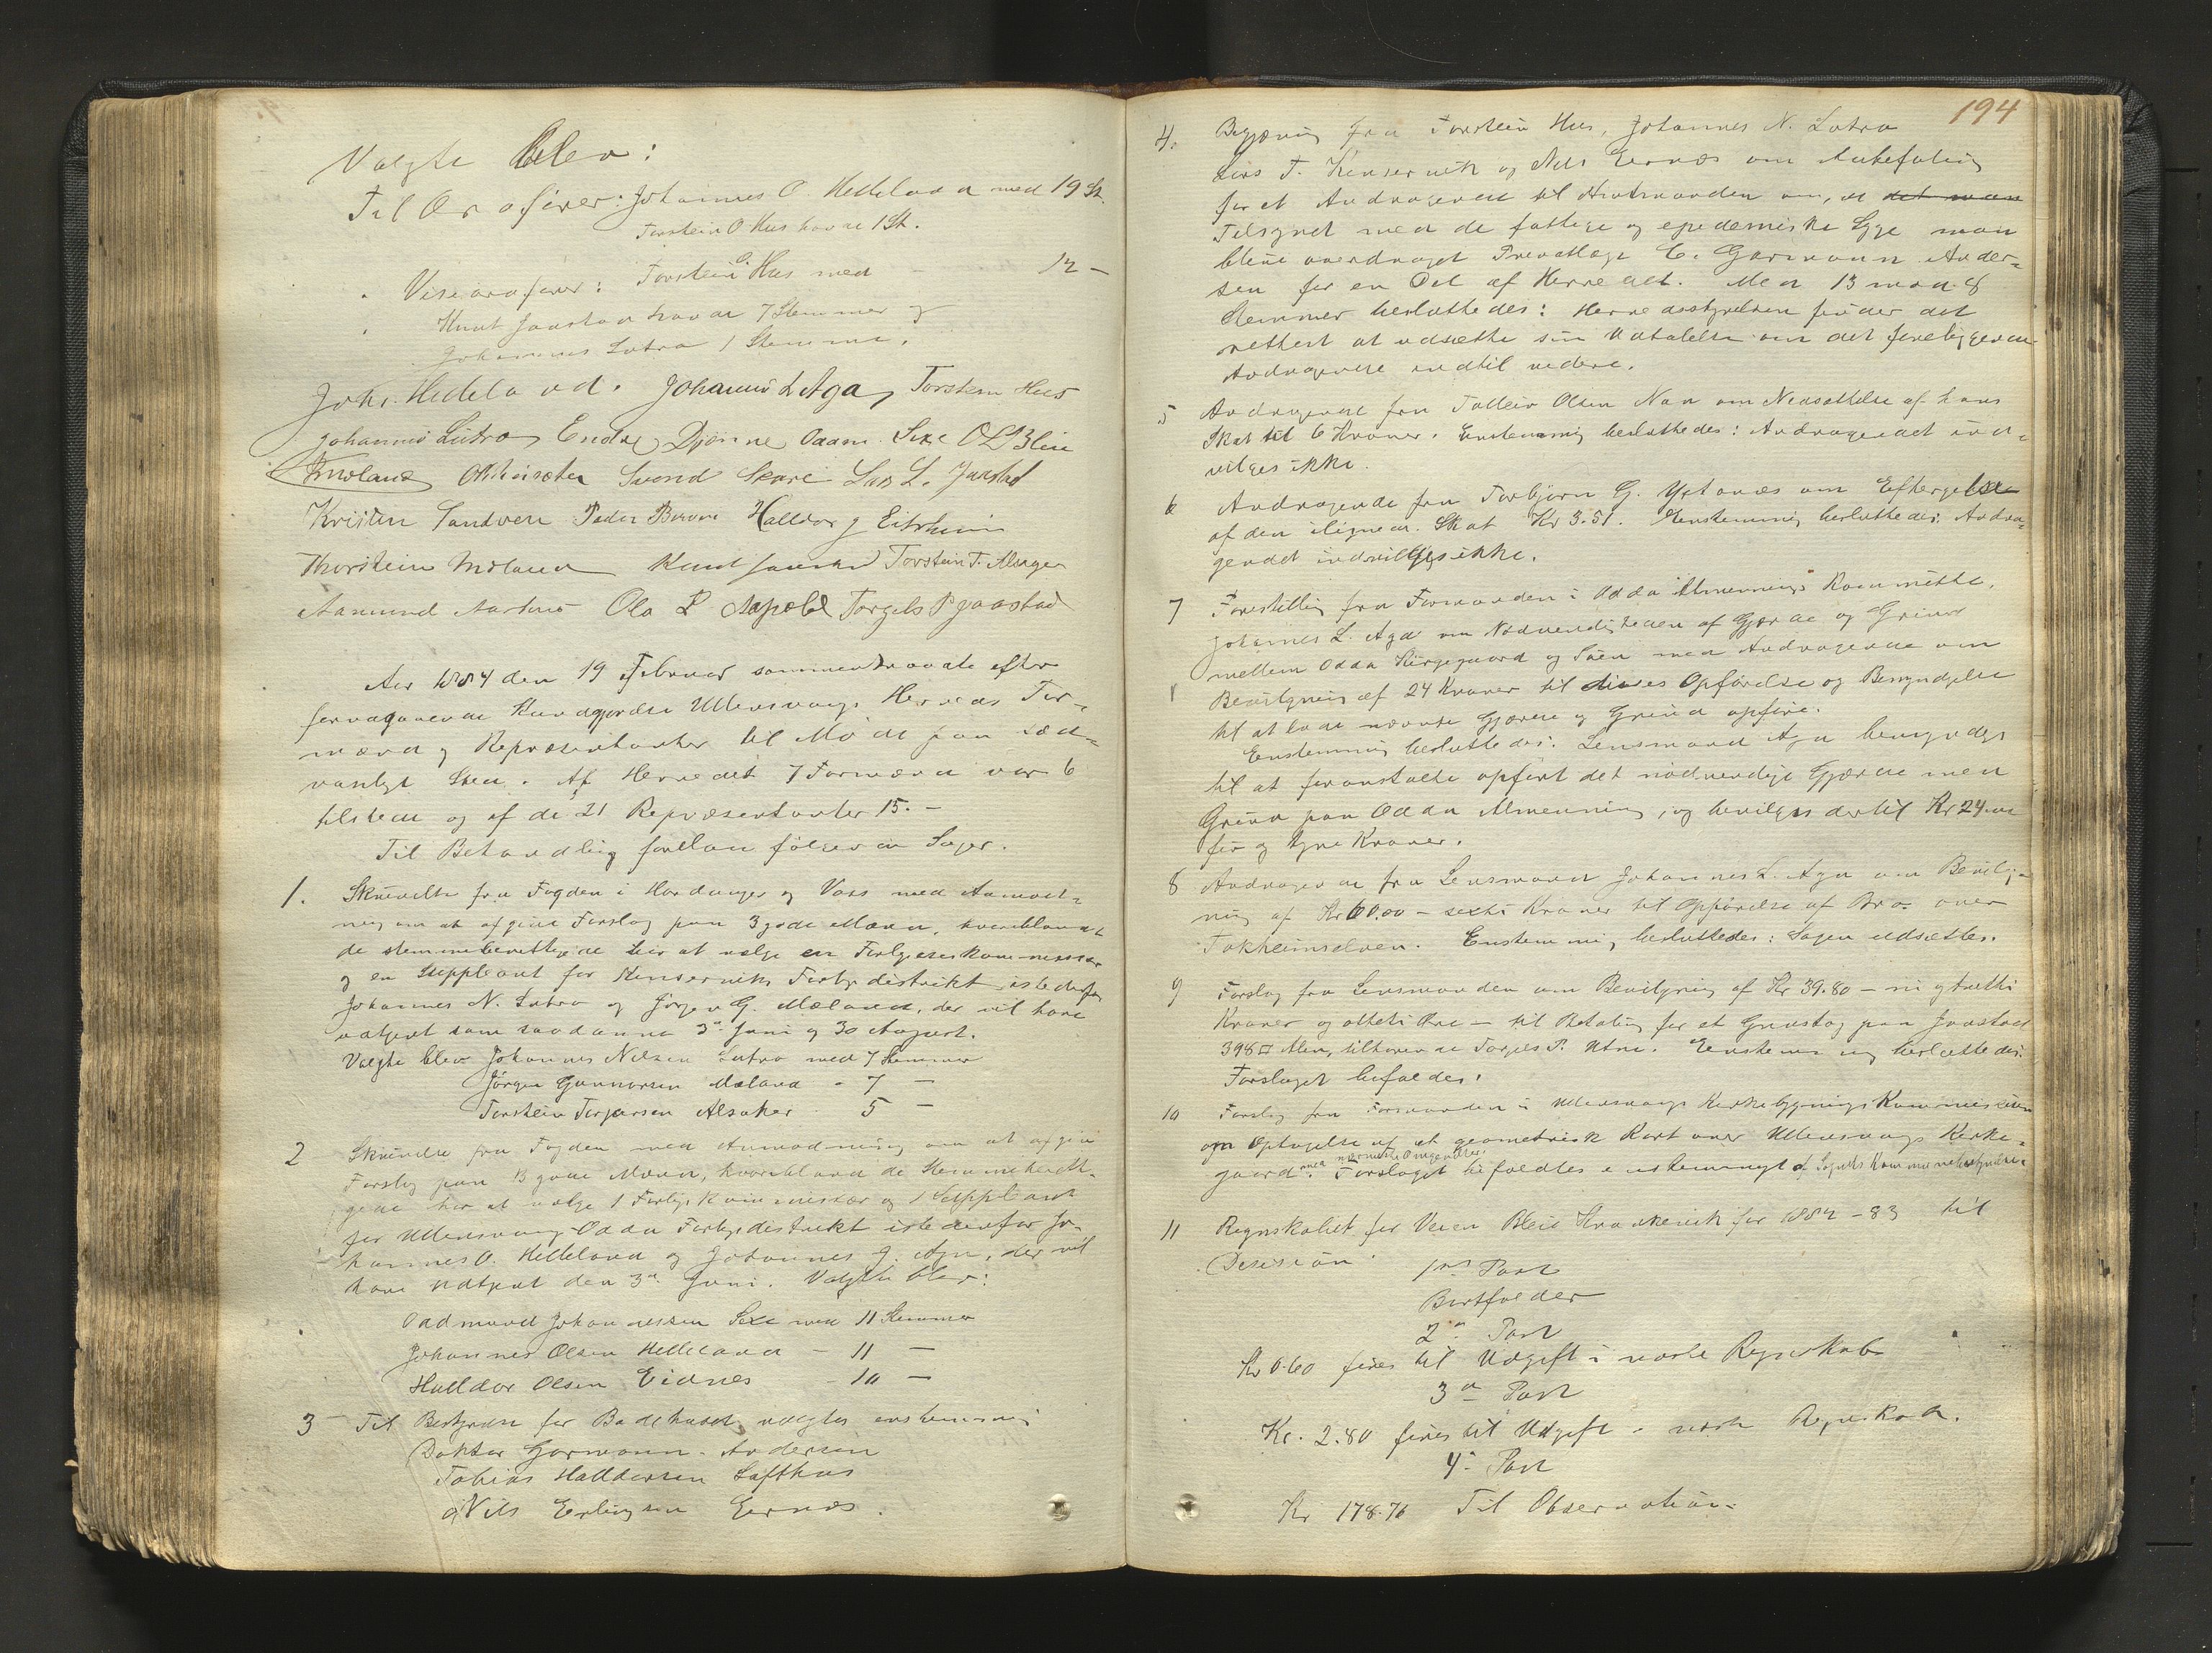 Valgte blev:
Til Ordfører: Johannes O. Helleland med 19 St.
Torstein O Hus havde 1 St.
" Viseordfører: Torstein O. Hus med - 12 -
" Knut Jaastad havde 7 Stemmer og
Johannes Lutro 1 Stemme.
Johs. Helleland. Johannes L Aga, Torstein Hus
Johannes Lutro Endre Djønne Oadm. Sexe O L Blie
Svend Skare Lars L. Jaastad
Kristen Sandven Peder Halldor J Eitrheim
Thorstein Måland Knud Jaastad Torstein T. Alsager
Aamund Aastun Ola L Apold Torgels P Jaastad
Aar 1884 den 19 Februar sammentraadte efter
foregaaende Kundgjørelse Ullensvangs Herreds For-
mænd og Repræsentanter til Møde paa sæd-
vanligt Sted. Af Herredets 7 Formænd var 6
tilstede og af de 21 Repræsentanter 15. -
Til Behandling forelaa følgende Sager.
1. Skrivelse fra Fogden i Hardanger og Voss med Anmod-
ning om at afgive Forslag paa 3 gode Mænd, hvoriblandt
de stemmeberettigede har at vælge en Forligelseskommissær
og en Suppleant for Kinserviks Forligsdistrikt istedetfor
Johannes N. Lutro og Jørgen G. Mæland, der vil have
udtjent som saadanne 3die Juni og 30 August.
Valgte blev Johannes Nilsen Lutro med 7 Stemmer
Jørgen Gunnarsen Mæland - 7 -
Torstein Torjersen Alsaker - 5 -
2 Skrivelse fra Fogden med Anmodning om at afgive
Forslag paa 3 gode Mænd, hvoribland de Stemmeberetti-
gede har at vælge 1 Forligskommissær og 1 Suppleant
for Ullensvang Odda Forligsdistrikt istedenfor Jo-
hannes O. Helleland og Johannes J. Aga, der vil
have udtjent den 3die Juni. Valgte blev:
Oadmund Johannessen Sexe med 11 Stemmer
Johannes Olsen Helleland - 11 -
Halldor Olsen Eidnes - 10 -
3 Til Bestyrelse for Badehuset valgtes enstemmig
Doktor Garmann-Andersen
Tobias Halldorsen Lofthus
og Nils Erlingsen Eernæs.
194
4. Begjæring fra Torstein Hus, Johannes N. Lutro
Lars T. Kinservik og Nils Eernæs om Anbefaling
for et Andragende til Amtmanden om, at det maa
Tilsynet med de fattige og epidemiske Syge maa
blive overdraget Privatlæge C. Garmann Ander-
sen for en Del af Herredet. Med 13 mod 8
Stemmer besluttedes: Herredsstyrelsen finder det
rettest at udsætte sin Udtalelse om det foreliggende
Andragende indtil videre.
5 Andragende fra Tolleiv Olsen Naa om Nedsættelse af hans
Skat til 6 Kroner. Enstemmig besluttedes: Andragendet ind-
vilges ikke.
6 Andragende fra Torbjørn G. Ystanæs om Eftergivelse
af den ilignede Skat Kr 3.51. Enstemmig besluttedes: Andra-
gendet indvilges ikke.
7 Forestilling fra Formanden i Odda Almennings Kommitte,
Johannes L. Aga om Nødvendigheden af Gjærde og Grind
mellem Odda Kirkegaard og Søen med Andragende om
Bevilgning af 24 Kroner til disses Opførelse og Bemyndigelse
til at lade nævnte Gjærde og Grind opføre.
Enstemmig besluttedes: Lensmand Aga bemyndiges
til at foranstalte opført det nødvendige Gjærde med
Grind paa Odda Almenning, og bevilges dertil Kr 24.00
fir og tyve Kroner.
8 Andragende fra Lensmand Johannes L. Aga om Bevilg-
ning af Kr 60.00 - sexti Kroner til Opførelse af Bro over
Tokheimselven. Enstemmig besluttedes: Sagen udsættes.
9 Forslag fra Lensmanden om Bevilgning af Kr 39.80 - ni og tretti
Kroner og otteti Øre - til Betaling for et Grustag paa Jaastad
398 □ Alen, tilhørende Torgels P. Utne. Enstemmig besluttedes:
Forslaget bifaldes.
10 Forslag fra Formanden i Ullensvangs Kirkebygnings Kommission
om Optagelse af et geometrisk Kart over Ullensvangs Kirke-
gaard med nærmeste Omgivelser. Forslaget bifaldtes enstemmigt af Sognets Kommunebestyrelse.
11 Regnskabet for Veien Bleie Kraakevik for 1882-83 til
Desision
1ste Post
Bortfalder
2den Post
Kr 0.60 føres til Udgift i næste Regnskab
3die Post
Kr. 2.80 føres til Udgift i næste Regnskab.
4de Post
Kr 178.76 Til Observation.